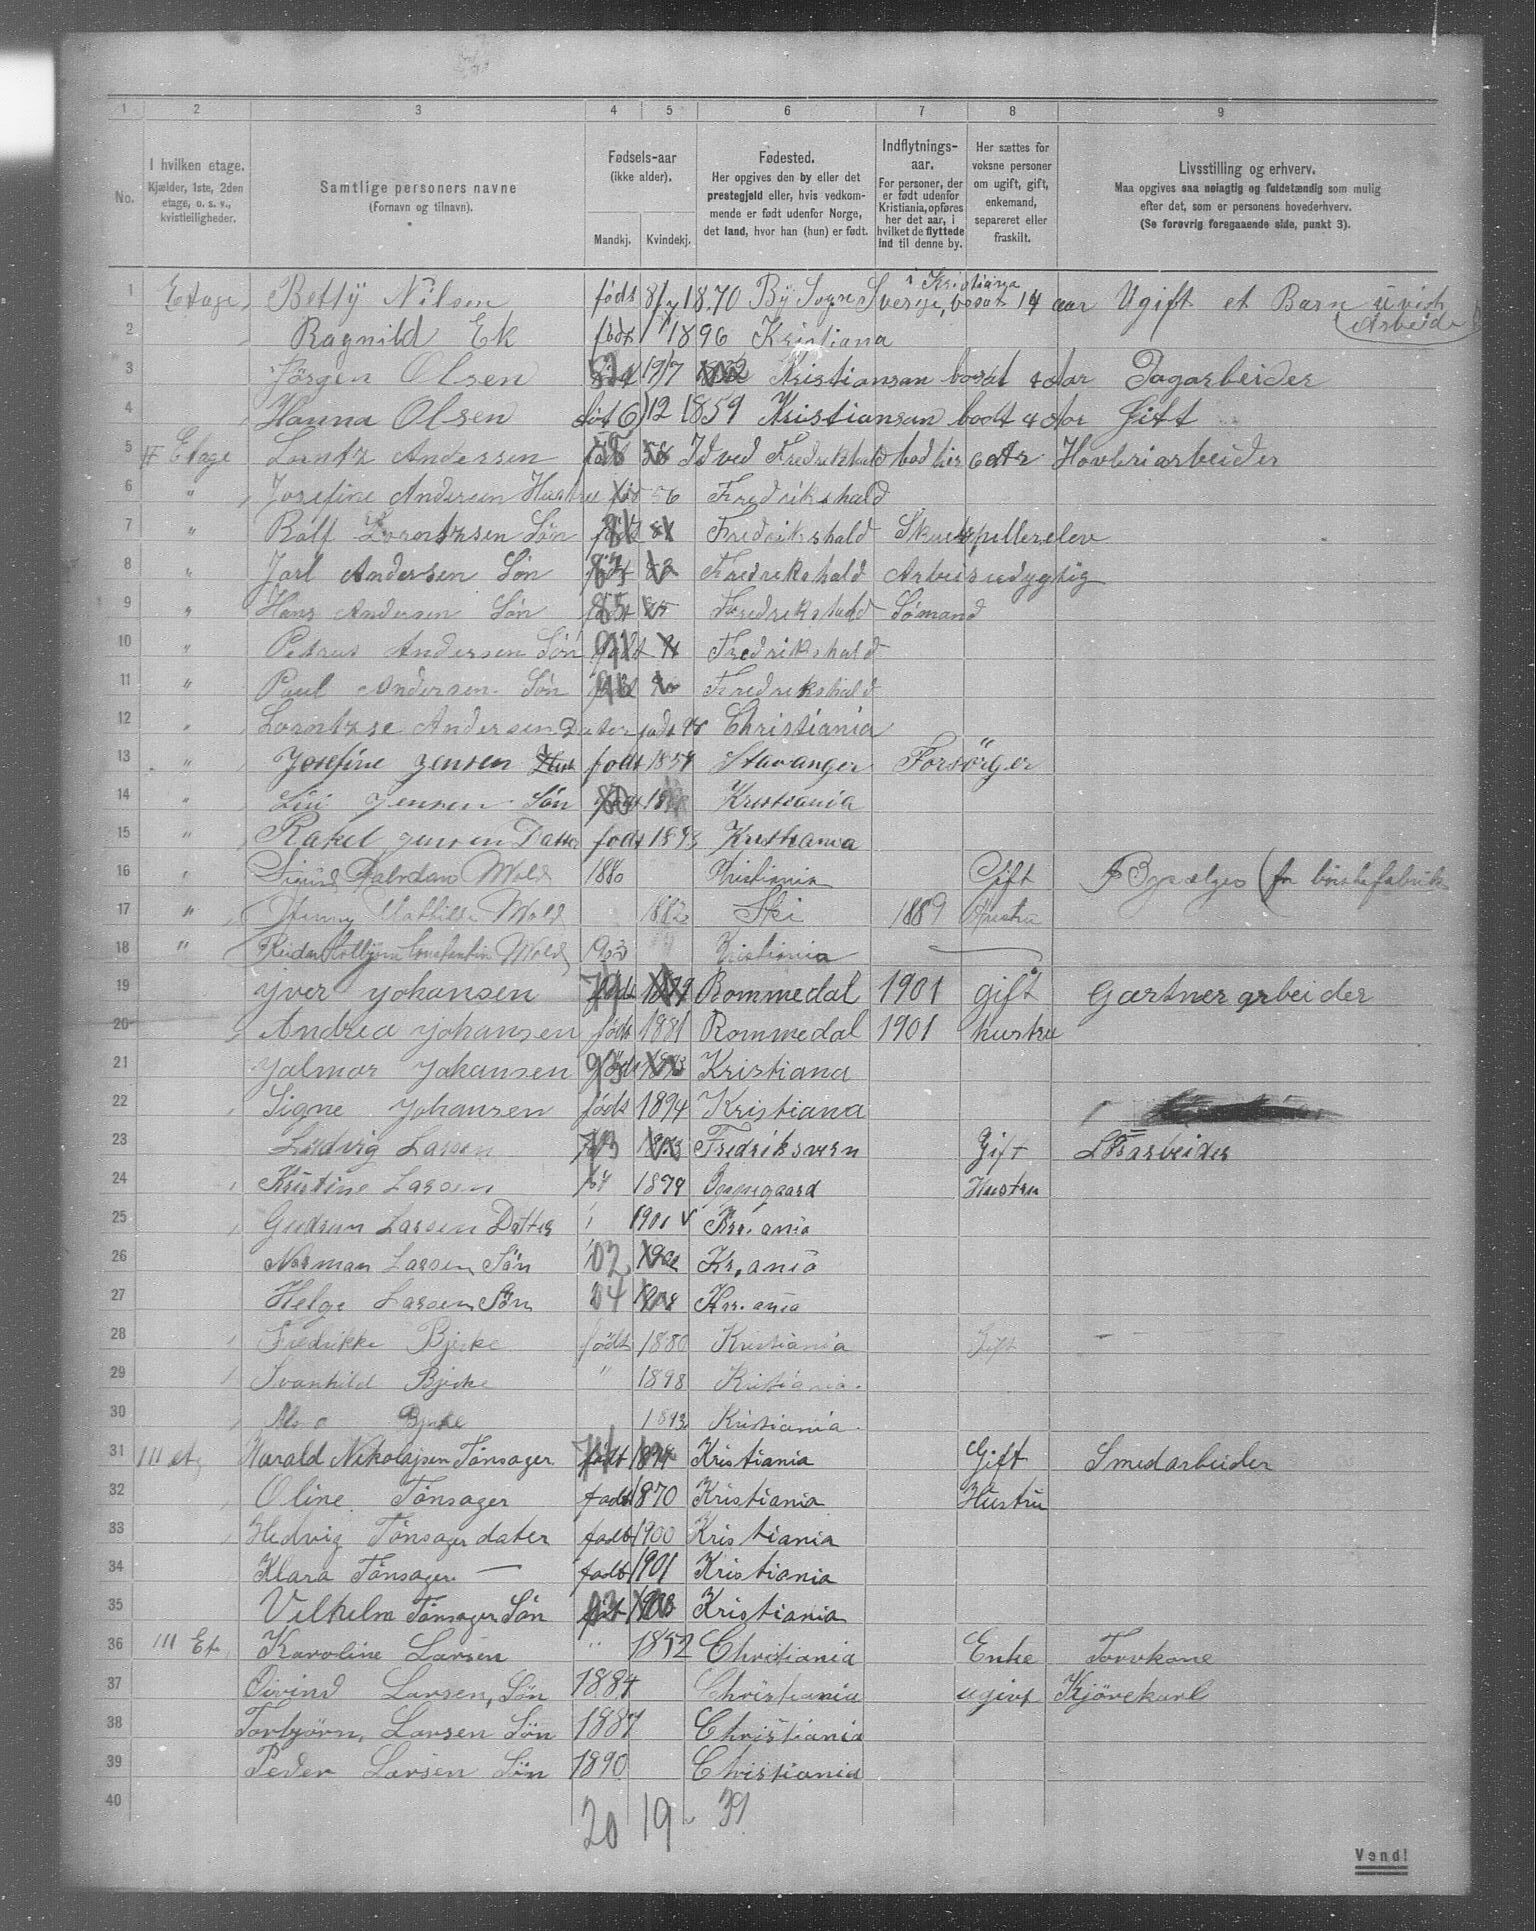 1 2 3 4 5 6 7 8 9
No.
I hvilken etage.
Kjælder, 1ste, 2den
etage, o. s. v.,
kvistleiligheder.
Samtlige personers navne
(Fornavn og tilnavn).
Fødsels-aar
(ikke alder).
Mandkj. Kvindekj.
Fødested.
Her opgives den by eller det
prestegjeld eller, hvis vedkom-
mende er født udenfor Norge,
det land, hvor han (hun) er født.
Indflytnings-
aar.
For personer, der
er født udenfor
Kristiania, opføres
her det aar, i
hvilket de flyttede
ind til denne by.
Her sættes for
voksne personer
om ugift, gift,
enkemand,
separeret eller
fraskilt.
Livsstilling og erhverv.
Maa opgives saa nøiagtig og fuldstændig som mulig
efter det, som er personens hovederhverv.
(Se forøvrig foregaaende side, punkt 3).
i Kristiania
1 Etage Betty Nilsen født 8/7 1870 By Sogn Sverge, bosat 14 aar Ugift et Barn
Arbeide
2 Ragnild Ek født 1896 Kristiana
3 Jörgen Olsen 19/7 Kristiansan bosat 4 Aar Dagarbeider
4 Hanna Olsen föt 6/12 1859 Kristiansan bodt 4 Aar Gift
5 II Etage Lorntz Andersen 58 Id ved Fredrikshald bod her 6 Aar Hövleriarbeider
6 " Josefine Andersen Hustru fød 56 Fredrikshald
7 " Rolf Lorntzsen Sön 81 Fredrikshald Skuespillerelev
8 " Jarl Andersen Sön 83 Fredrekshald Arbeisudygtig
9 " Hans Andersen Sön 85 Fredrekshald Sömand
10 " Petrus Andersen Sön 91 Fredrikshald
11 " Paul Andersen Sön Fredrekshald
12 " Lorntzse Andersen Dater født 98 Christiania
13 " Josefine Jensen født 1859 Stavanger Forsörger
14 " Jensen Sön 80 Kristiania
15 " Rakel Jensen Datter født 1893 Kristiania
16 " Halvdan Mold 1880 Kristiania Gift
17 " Jenny Mathilde Mold 1882 Ski 1889 Hustru
18 " Reidar Constantin Mold 1903 Kristiania
19 Yver Johansen 79 Rommedal 1901 gift Gartner arbeider
20 Andrea Johansen född 1881 Rommedal 1901 hustru
21 Jalmar Johansen 93 Kristiana
22 Signe Johansen föds 1894 Kristiana
23 Ludvig Larsen 73 Fredriksvern Gift arbeider
24 Kristine Larsen 1879 Oppegaard Hustru
25 Gudrun Larsen Datter 1901 Kr.ania
26 Norman Larsen Sön 02 Kr.ania
27 Helge Larsen Sön 04 Kr.ania
28 Fredrikke Bjerke födt 1880 Kristiania Gift
29 Svanhild Bjerke " 1898 Kristiania.
30 Bjerke Kristiania.
31 III etg Harald Nikolajsen Tönsager 74 Kristiania Gift Smedarbeider
32 Oline Tönsager født 1870 Kristiania Hustru
33 Hedvig Tönsager dater født 1900 Kristiania
34 Klara Tönsager — født 1901 Kristiania
35 Vilhelm Tönsager Sön 03 Kristiania
36 III Et. Karoline Larsen " 1852 Christiania Enke Torvkone
37 Öivind Larsen, Sön 1884 Christiania ugivt Kjörekarl
38 Torbjörn, Larsen Sön 1887 Christiania
39 Peder Larsen Sön 1890 Christiania
40
20 19 39
Vend!